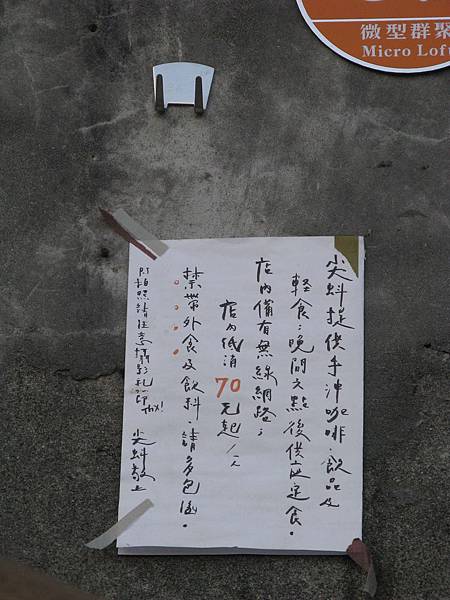 微型群聚
Micro Lofu
尖蚪提供手沖咖啡、飲品及
輕食；晚間六點後供應定食。
店內備有無線網路；
店內低消70元起/人
禁帶外食及飲料，請多包涵。
拍照請注意攝影礼節thx! 尖蚪敬上